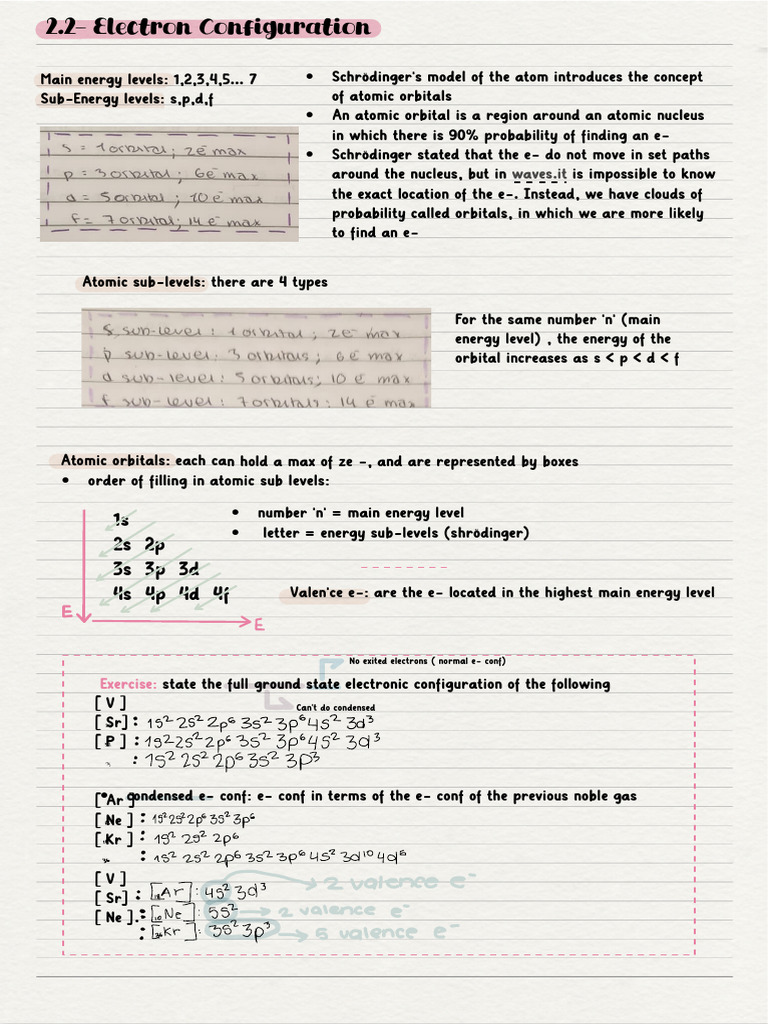 2.2- Electron Configuration
Main energy levels: 1,2,3,4,5... 7
Sub-Energy levels: s,p,d,f
s = 1 orbital; 2e⁻ max
p = 3 orbital; 6e⁻ max
d = 5 orbital; 10 e⁻ max
f = 7 orbital; 14 e⁻ max
• Schrödinger's model of the atom introduces the concept
of atomic orbitals
• An atomic orbital is a region around an atomic nucleus
in which there is 90% probability of finding an e-
• Schrödinger stated that the e- do not move in set paths
around the nucleus, but in waves.it is impossible to know
the exact location of the e-. Instead, we have clouds of
probability called orbitals, in which we are more likely
to find an e-
Atomic sub-levels: there are 4 types
s sub-level: 1 orbital; 2e⁻ max
p sub-level: 3 orbitals; 6e⁻ max
d sub-level: 5 orbitals; 10 e⁻ max
f sub-level: 7 orbitals; 14 e⁻ max
For the same number 'n' (main
energy level) , the energy of the
orbital increases as s < p < d < f
Atomic orbitals: each can hold a max of ze -, and are represented by boxes
• order of filling in atomic sub levels:
1s
2s 2p
3s 3p 3d
4s 4p 4d 4f
E
E
• number 'n' = main energy level
• letter = energy sub-levels (shrödinger)
Valen'ce e-: are the e- located in the highest main energy level
No exited electrons ( normal e- conf)
Exercise: state the full ground state electronic configuration of the following
Can't do condensed
[ V ]
[ Sr] : 1s² 2s² 2p⁶ 3s² 3p⁶ 4s² 3d³
[ P ] : 1s² 2s² 2p⁶ 3s² 3p⁶ 4s² 3d³
: 1s² 2s² 2p⁶ 3s² 3p³
• condensed e- conf: e- conf in terms of the e- conf of the previous noble gas
[ Ar ]
[ Ne ] : 1s² 2s² 2p⁶ 3s² 3p⁶
[ Kr ] : 1s² 2s² 2p⁶
: 1s² 2s² 2p⁶ 3s² 3p⁶ 4s² 3d¹⁰ 4d⁶
[ V ]
[ Sr ] : [₁₈Ar] : 4s² 3d³ 2 valence e⁻
[ Ne ] : [₁₀Ne] : 5s² 2 valence e⁻
: [₃₆Kr] : 3s² 3p³ 5 valence e⁻